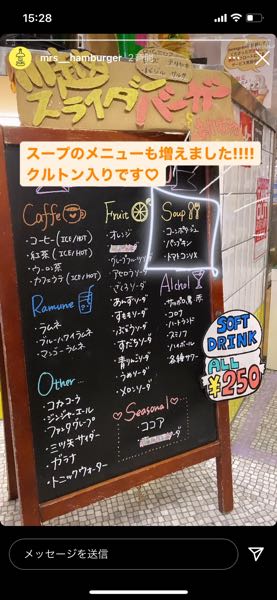 15:28
mrs__hamburger 2時間
スライダー
バーガー
スープのメニューも増えました!!!!
クルトン入りです♡
Caffe
・コーヒー(ICE/HOT)
・紅茶(ICE/HOT)
・ウーロン茶
・カフェラテ(ICE/HOT)
Ramune
・ラムネ
・ブルーハワイラムネ
・マンゴーラムネ
Other
・コカコーラ
・ジンジャエール
・ファンタグレープ
・三ツ矢サイダー
・ガラナ
・トニックウォーター
Fruit
・オレンジ
・グレープフルーツ
・ざくろソーダ
・すももソーダ
・ぶどうソーダ
・すだちソーダ
・青りんごソーダ
・うめソーダ
・メロンソーダ
Soup
・コーンポタージュ
・パンプキン
・トマトコンソメ
Alchol
・コロナ
・ハートランド
・スミノフ
・ハイボール
・各種サワー
♡Seasonal♡
・ココア
ソーダ
SOFT
DRINK
ALL
¥250
メッセージを送信